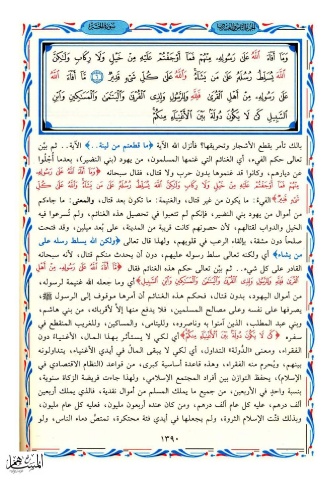 سورة الحشر
وَمَا أَفَاءَ اللَّهُ عَلَى رَسُولِهِ مِنْهُمْ فَمَا أَوْجَفْتُمْ عَلَيْهِ مِنْ خَيْلٍ وَلَا رِكَابٍ وَلَكِنَّ
اللَّهَ يُسَلِّطُ رُسُلَهُ عَلَى مَن يَشَاءُ وَاللَّهُ عَلَى كُلِّ شَيْءٍ قَدِيرٌ ٦ مَّا أَفَاءَ اللَّهُ
عَلَى رَسُولِهِ مِنْ أَهْلِ الْقُرَى فَلِلَّهِ وَلِلرَّسُولِ وَلِذِي الْقُرْبَى وَالْيَتَامَى وَالْمَسَاكِينِ وَابْنِ
السَّبِيلِ كَيْ لَا يَكُونَ دُولَةً بَيْنَ الْأَغْنِيَاءِ مِنكُمْ
بالك تأمر بقطع الأشجار وتحريقها؟ فأنزل الله الآية ﴿ما قطعتم من لينة..﴾ الآية.. ثم بيّن
تعالى حكم الفيء، أي الغنائم التي غنمها المسلمون، من يهود (بني النضير)، بعدما أُجلُوا
عن ديارهم، وكانوا قد غنموها بدون حرب ولا قتال، فقال سبحانه ﴿وَمَا أَفَاءَ اللَّهُ عَلَى رَسُولِهِ
مِنْهُمْ فَمَا أَوْجَفْتُمْ عَلَيْهِ مِنْ خَيْلٍ وَلَا رِكَابٍ وَلَكِنَّ اللَّهَ يُسَلِّطُ رُسُلَهُ عَلَى مَن يَشَاءُ وَاللَّهُ عَلَى كُلِّ
شَيْءٍ قَدِيرٌ﴾ الفيءُ: ما يكون من غير قتال، والغنيمة: ما تكون بعد قتال، والمعنى: ما جاءكم
من أموال من يهود بني النضير، فإنكم لم تتعبوا في تحصيل هذه الغنائم، ولم تُسرعوا فيه
الخيل والدواب لقتالهم، لأن حصونهم كانت قريبة من المدينة، على بُعد ميلين، وقد فتحت
صلحاً دون مشقة، بإلقاء الرعب في قلوبهم، ولهذا قال تعالى ﴿ولكن الله يسلط رسله على
من يشاء﴾ أي ولكنه تعالى سلط رسوله عليهم، دون أن يحدث منكم قتال، لأنه سبحانه
القادر على كل شيء... ثم بيّن تعالى حكم هذه الغنائم فقال ﴿مَّا أَفَاءَ اللَّهُ عَلَى رَسُولِهِ مِنْ أَهْلِ
الْقُرَى فَلِلَّهِ وَلِلرَّسُولِ وَلِذِي الْقُرْبَى وَالْيَتَامَى وَالْمَسَاكِينِ وَابْنِ السَّبِيلِ﴾ أي وما جعله الله غنيمة لرسوله،
من أموال اليهود، بدون قتال، فحكم هذه الغنائم أن أمرها موقوف إلى الرسول ﷺ،
يصرفها على نفسه وعلى مصالح المسلمين، فلا يدفع منها إلاَّ لأقربائه، من بني هاشم،
وبني عبد المطلب، الذين آمنوا به وناصروه، ولليتامى، والمساكين، وللغريب المنقطع في
سفره ﴿كَيْ لَا يَكُونَ دُولَةً بَيْنَ الْأَغْنِيَاءِ مِنكُمْ﴾ أي لكي لا يستأثر بهذا المال، الأغنياءُ دون
الفقراء، ومعنى «الدُّولة» التداول، أي لكي لا يبقى المالُ في أيدي الأغنياء، يتداولونه
بينهم، ويُحرم منه الفقراء، وهذه قاعدة أساسية كبرى، من قواعد (النظام الاقتصادي في
الإسلام)، يحفظ التوازن بين أفراد المجتمع الإسلامي، ولهذا جاءت فريضة الزكاة سنوية،
بنسبة واحدٍ في الأربعين، من جميع ما يملك المسلم من أموال نقدية، فالذي يملك أربعين
ألف درهم، عليه كل عام ألف درهم، ومن كان عنده أربعون مليون، فعليه كل عام مليون،
وبذلك فتَّت الإسلام الثروة، ولم يجعلها في أيدي فئة محتكرة، تمتصُّ دماء الناس، ولو
١٣٩٠